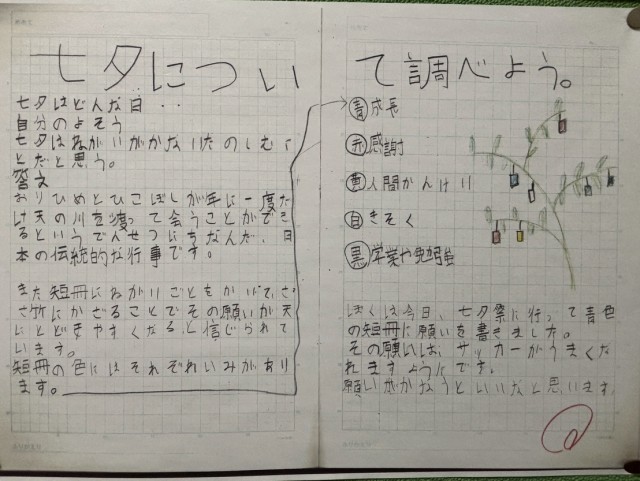 七夕について調べよう。
七夕はどんな日・・
自分のよそう
七夕はねがいがかないたのしむこ
とだと思う。
答え
おりひめとひこぼしが年に一度だ
け天の川を渡って会うことができ
るというでんせつにちなんだ、日
本の伝統的な行事です。
また短冊にねがいごとをかいて、さ
さ竹にかざることでその願いが天
にとどきやすくなると信じられて
います。
短冊の色にはそれぞれいみがあり
ます。
青 成長
赤 感謝
黄 人間かんけい
白 きそく
黒 学業や勉強
ぼくは今日、七夕祭に行って青色
の短冊に願いを書きました。
その願いは、サッカーがうまくな
れますようにです。
願いがかなうといいなと思います